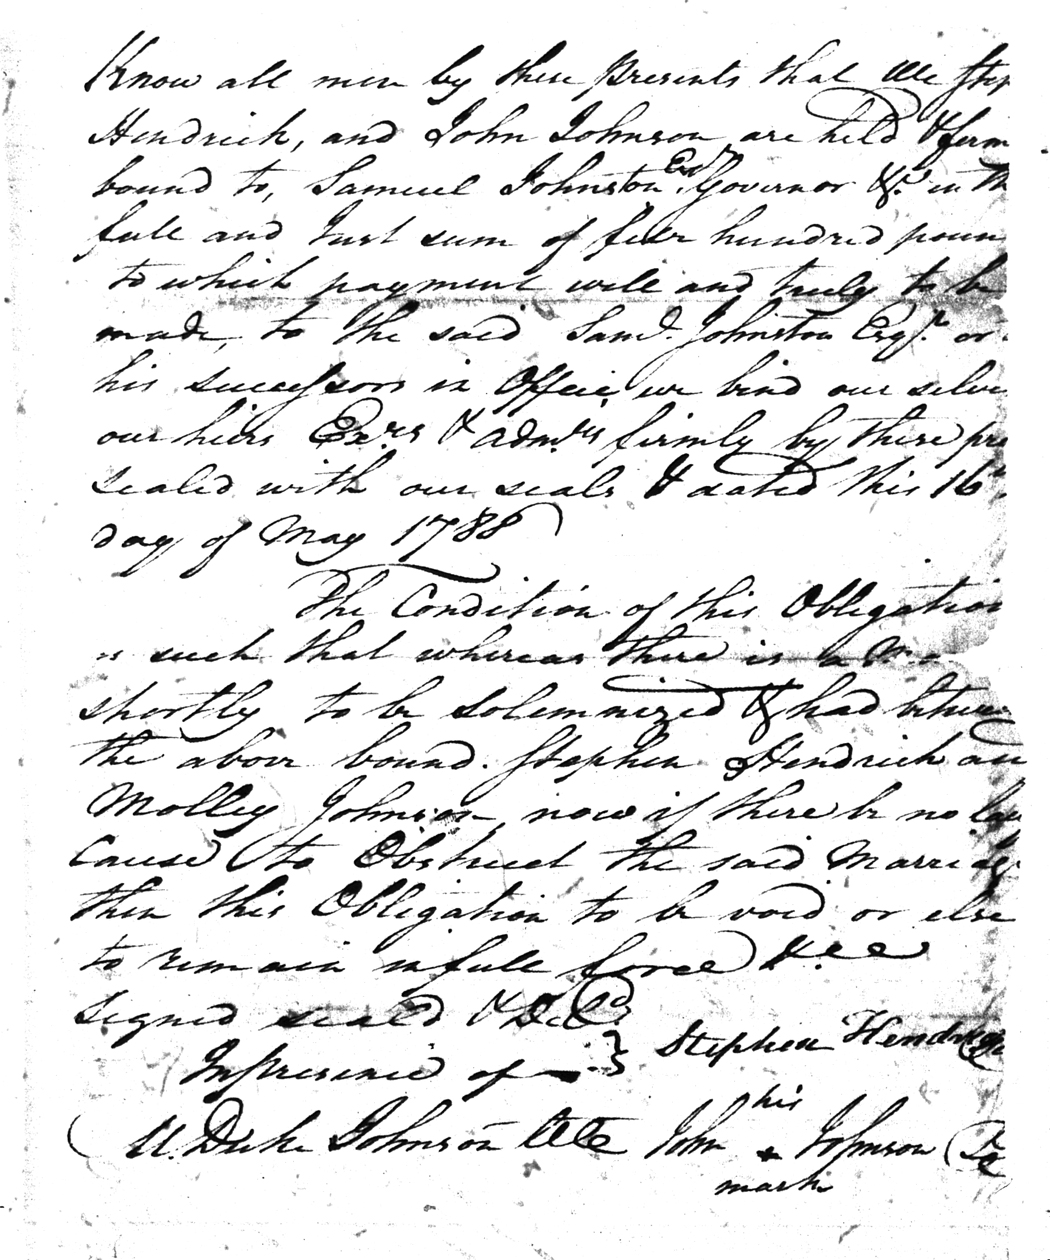 Know all men by these presents that We Step
Hendrick, and John Johnson are held & firm
bound to, Samuel Johnston Esqr. Governor &c. in th
full and Just sum of five hundred poun
to which payment will and truly to be
made, to the said Saml. Johnston Esqr. or
his successors in Office, we bind our selve
our heirs Exrs & admrs firmly by these pre
sealed with our seals & dated this 16th.
day of May 1788
The Condition of this Obligation
is such that whereas there is a Ma
shortly to be Solemnized & had betwee
the above bound. Stephen Hendrick an
Molley Johnson, now if there be no law
Cause to Obstruct the said Marriage
then this Obligation to be void or else
to remain in full force &cc
Signed seald & Deld
In presence of Stephen Hendrick
his
W. Duke Johnson John + Johnson
mark